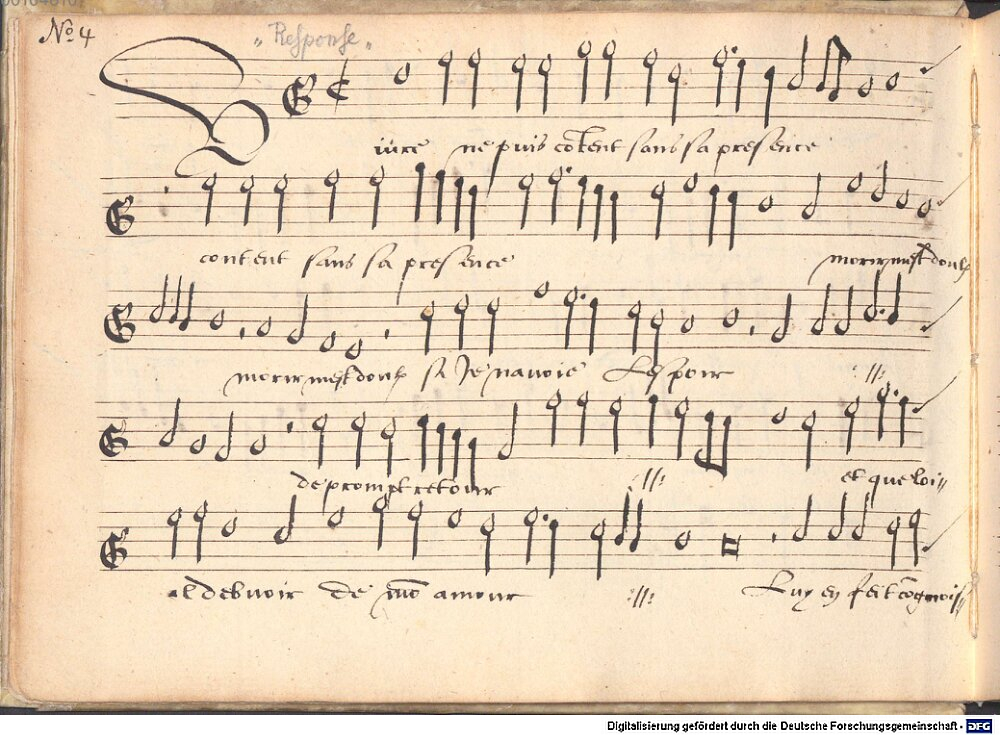 No 4
„ Response „
iure ne puis cōtent sans sa presence
content sans sa presence morir mest doulx
morir mest doulx si Je navoie Lespoir :||:
de prompt retour :||: et que loi=
al debuoir de mō amour :||: Luy en feit cōgnois=
Digitalisierung gefördert durch die Deutsche Forschungsgemeinschaft - DFG